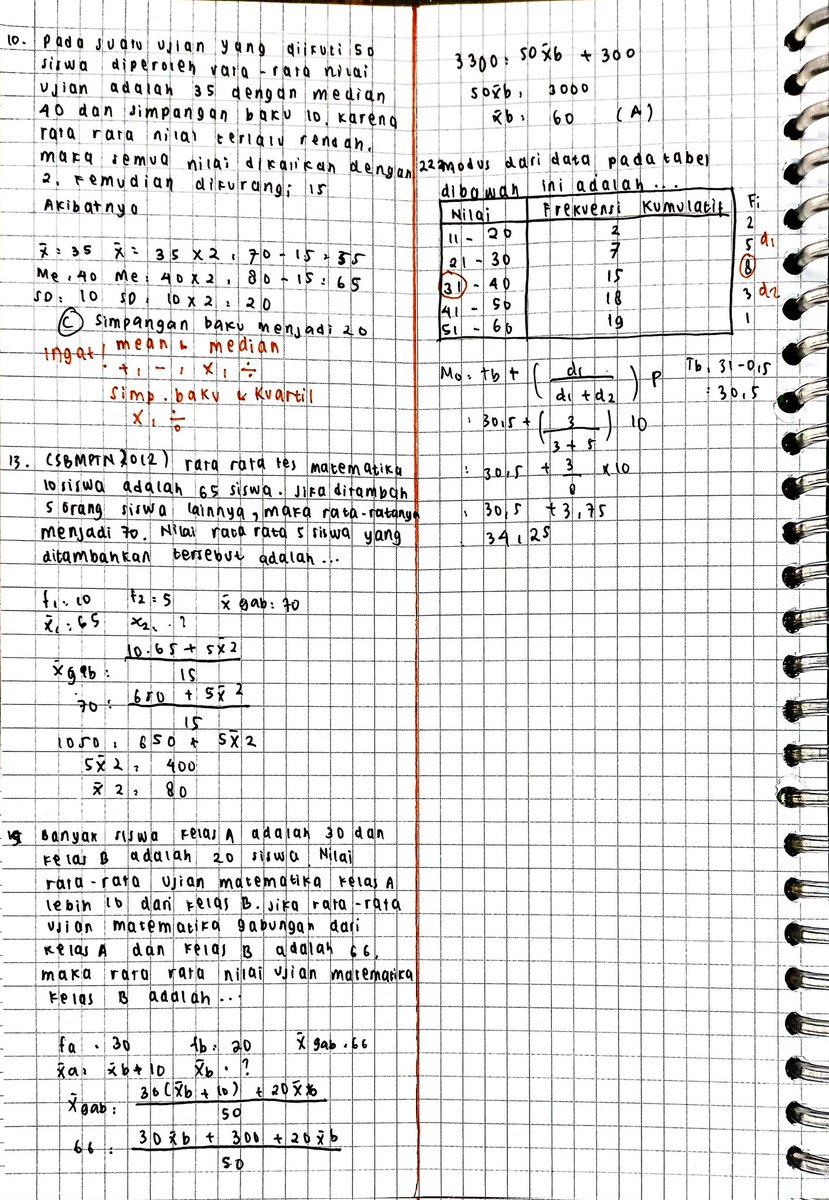 10. Pada suatu ujian yang diikuti 50
siswa diperoleh rata-rata nilai
ujian adalah 35 dengan median
40 dan simpangan baku 10. karena
rata rata nilai terlalu rendah,
maka semua nilai dikalikan dengan
2, kemudian dikurangi 15
Akibatnya
x̄ : 35 x̄ = 35 x 2 : 70 - 15 : 55
Me : 40 Me : 40 x 2 : 80 - 15 : 65
SD : 10 SD : 10 x 2 : 20
C simpangan baku menjadi 20
Ingat! mean & median
+, -, x, ÷
simp. baku & kuartil
x, ÷
13. (SBMPTN 2012) rata rata tes matematika
10 siswa adalah 65 siswa. Jika ditambah
5 orang siswa lainnya, maka rata-ratanya
menjadi 70. Nilai rata rata 5 siswa yang
ditambahkan tersebut adalah ...
f1 : 10 f2 = 5 x̄ gab : 70
x̄1 : 65 x2 : ?
x̄ gab : 10.65 + 5x̄2 / 15
70 : 650 + 5x̄2 / 15
1050 : 650 + 5x̄2
5x̄2 : 400
x̄2 : 80
Banyak siswa kelas A adalah 30 dan
kelas B adalah 20 siswa. Nilai
rata-rata ujian matematika kelas A
lebih 10 dari kelas B. Jika rata-rata
ujian matematika gabungan dari
kelas A dan kelas B adalah 66,
maka rata rata nilai ujian matematika
kelas B adalah ...
fa : 30 fb : 20 x̄ gab : 66
x̄a : x̄b + 10 x̄b : ?
x̄gab : 30(x̄b + 10) + 20x̄b / 50
66 : 30x̄b + 300 + 20x̄b / 50
3300 : 50x̄b + 300
50x̄b : 3000
x̄b : 60 (A)
222 Modus dari data pada tabel
dibawah ini adalah ...
Nilai Frekuensi Kumulatif Fi
11 - 20 2 2
21 - 30 7 5 d1
31 - 40 15 8
41 - 50 18 3 d2
51 - 60 19 1
Mo : tb + (d1 / d1 + d2) P Tb : 31 - 0,5
: 30,5
: 30,5 + (3 / 3 + 5) 10
: 30,5 + 3/8 x 10
: 30,5 + 3,75
: 34,25